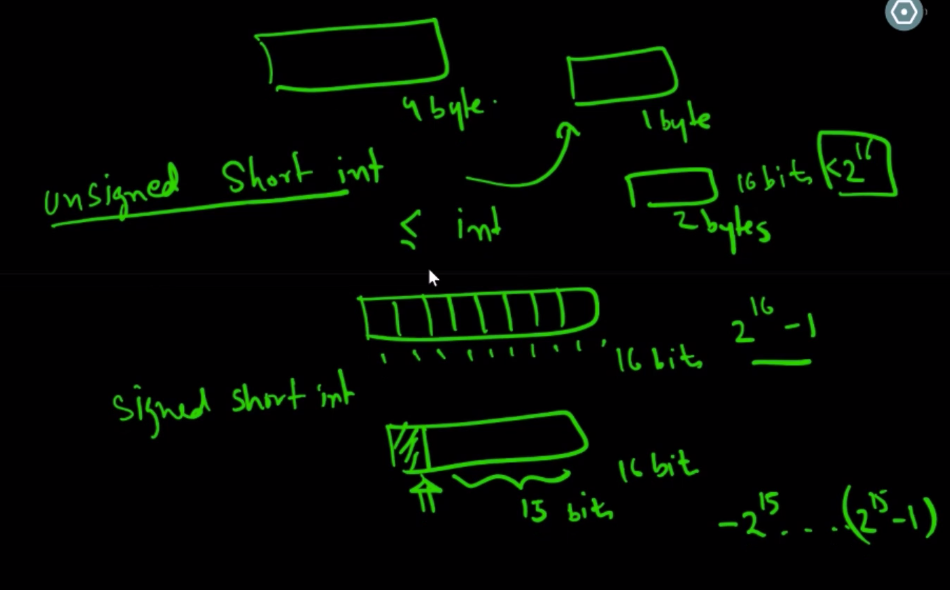 4 byte.
1 byte
unsigned Short int
16 bits <2^16
2 bytes
≤ int
16 bits 2^16 - 1
signed short int
16 bit
15 bits
-2^15 . . . . (2^15 - 1)